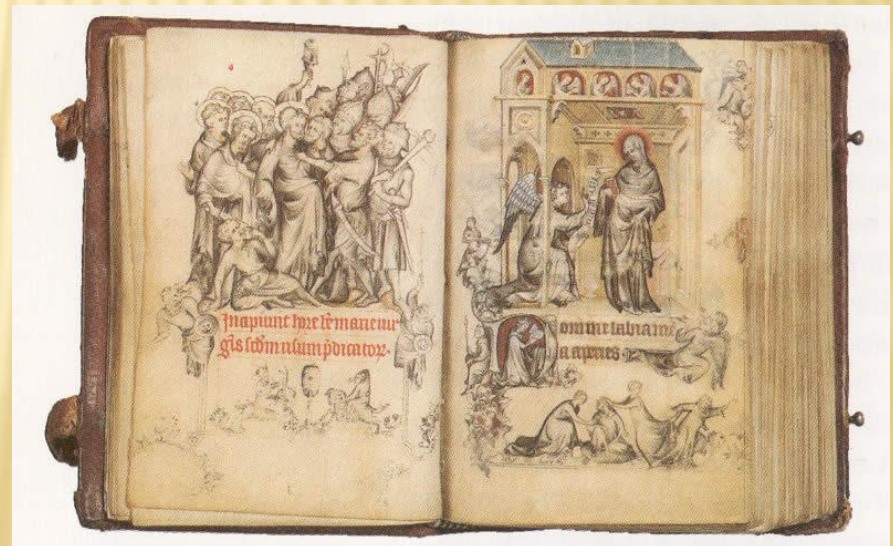 Incipiunt hore bẽ marie uir
gĩs scdm usum p̃dicatoꝝ.
Domine labia me
a aperies